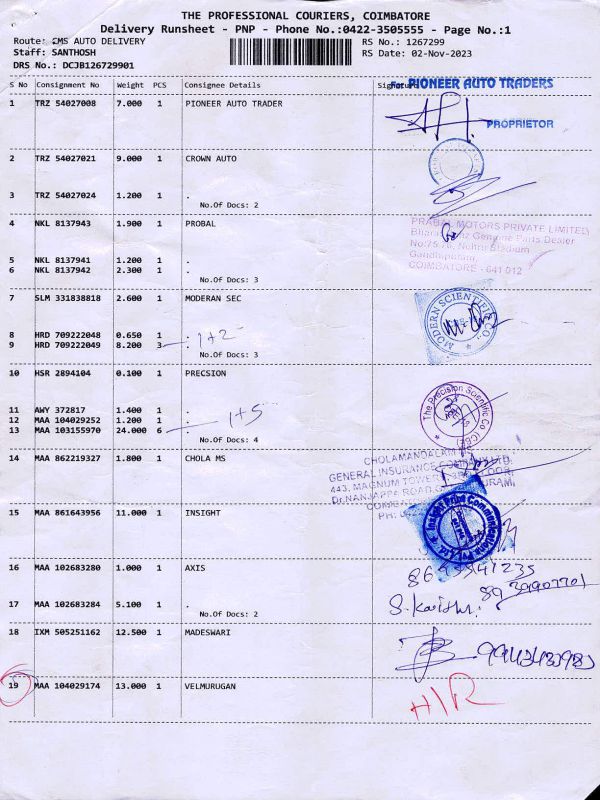 THE PROFESSIONAL COURIERS, COIMBATORE
Delivery Runsheet - PNP - Phone No.:0422-3505555 - Page No.:1
Route: CMS AUTO DELIVERY RS No.: 1267299
Staff: SANTHOSH RS Date: 02-Nov-2023
DRS No.: DCJB126729901
S No Consignment No Weight PCS Consignee Details Signature For PIONEER AUTO TRADERS
1 TRZ 54027008 7.000 1 PIONEER AUTO TRADER
PROPRIETOR
2 TRZ 54027021 9.000 1 CROWN AUTO
3 TRZ 54027024 1.200 1 .
No.Of Docs: 2
4 NKL 8137943 1.900 1 PROBAL PRABAL MOTORS PRIVATE LIMITED
Genuine Parts Dealer
Nehru Stadium
5 NKL 8137941 1.200 1 . Gandhipuram,
6 NKL 8137942 2.300 1 . COIMBATORE - 641 012
No.Of Docs: 3
7 SLM 331838818 2.600 1 MODERAN SEC MODERN SCIENTIFIC CO.
8 HRD 709222048 0.650 1 . 1+2
9 HRD 709222049 8.200 3 .
No.Of Docs: 3
10 HSR 2894104 0.100 1 PRECSION
The Precision Scientific Co (CBE)
11 AWY 372817 1.400 1 .
12 MAA 104029252 1.200 1 . 1+5
13 MAA 103155970 24.000 6 .
No.Of Docs: 4
14 MAA 862219327 1.800 1 CHOLA MS CHOLAMANDALAM
GENERAL INSURANCE COMPANY LTD,
443, MAGNUM TOWER
Dr.NANJAPPA ROAD,
15 MAA 861643956 11.000 1 INSIGHT Insight Communications
16 MAA 102683280 1.000 1 AXIS
17 MAA 102683284 5.100 1 .
No.Of Docs: 2
18 IXM 505251162 12.500 1 MADESWARI
19 MAA 104029174 13.000 1 VELMURUGAN H/R